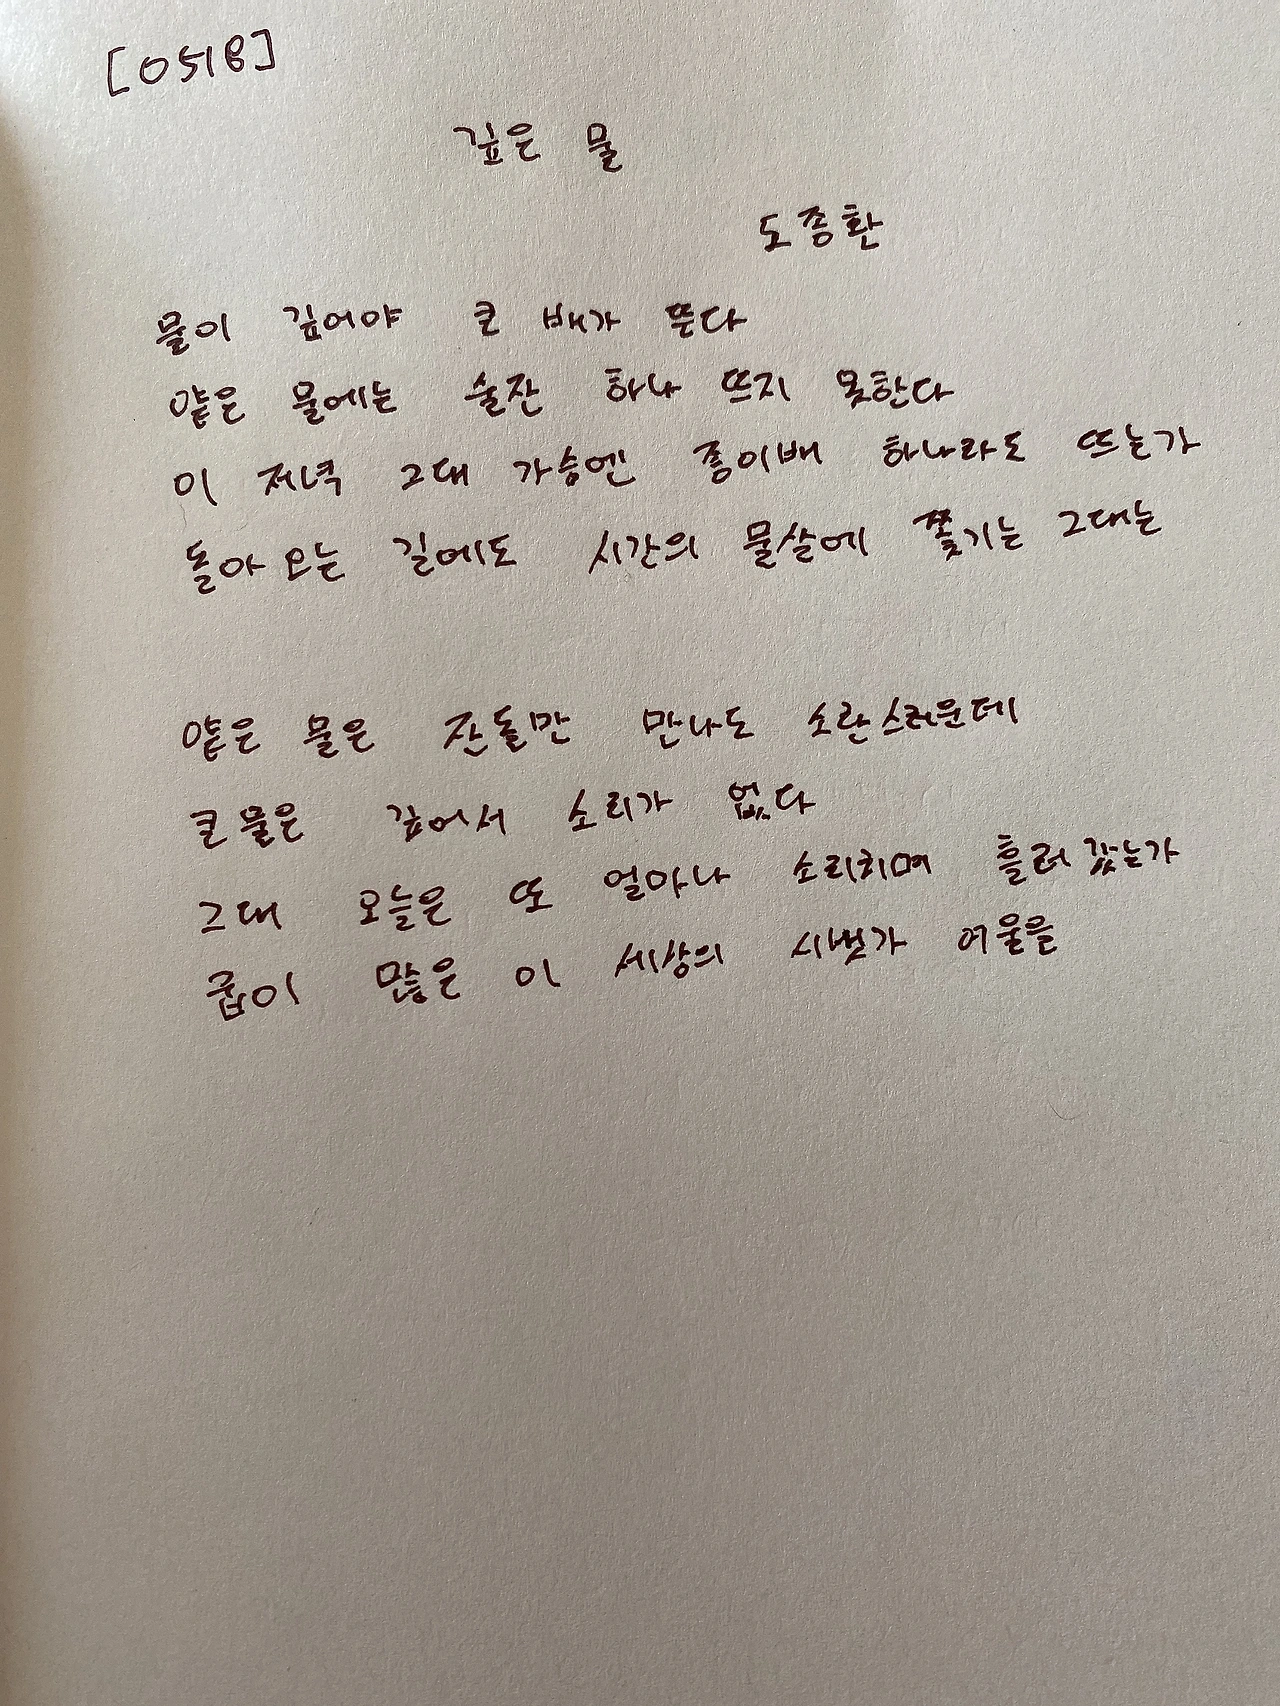 [0518]
깊은 물
도종환
물이 깊어야 큰 배가 뜬다
얕은 물에는 술잔 하나 뜨지 못한다
이 저녁 그대 가슴엔 종이배 하나라도 뜨는가
돌아오는 길에도 시간의 물살에 쫓기는 그대는
얕은 물은 잔돌만 만나도 소란스러운데
큰 물은 깊어서 소리가 없다
그대 오늘은 또 얼마나 소리치며 흘러갔는가
굽이 많은 이 세상의 시냇가 여울을